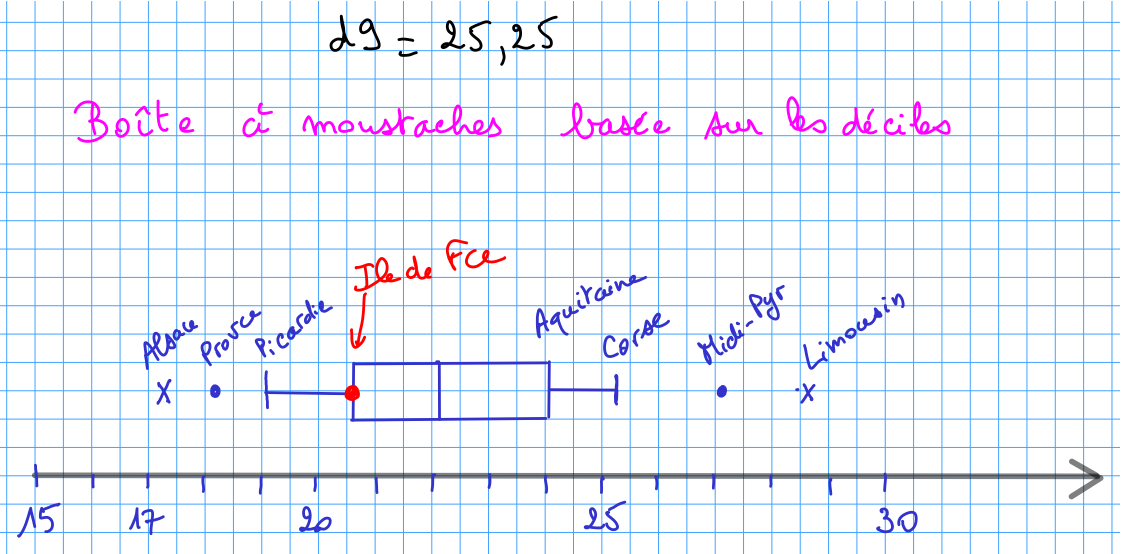 d9 = 25,25
Boîte à moustaches basée sur les déciles
Ile de Fce
Alsace
Picardie
Aquitaine
Corse
Midi-Pyr
Limousin
15 17 20 25 30